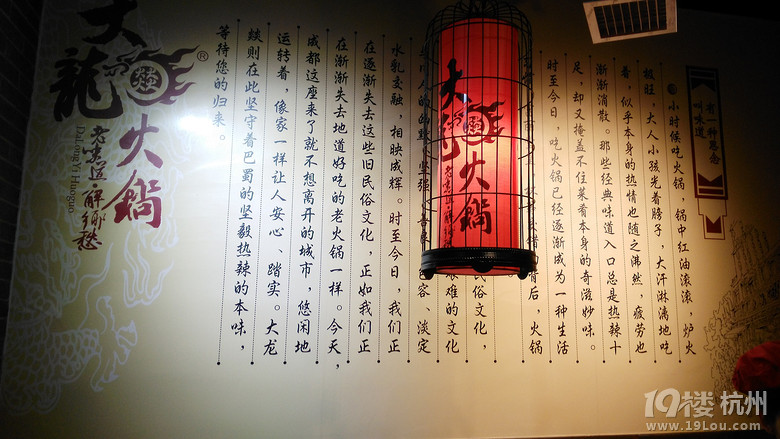 有一种思念
叫味道
小时候吃火锅,锅中红油滚滚,炉火
极旺,大人小孩光着膀子,大汗淋漓地吃
着,似乎本身的热情也随之沸然,疲劳也
渐渐消散。那些经典味道入口总是热辣十
足,却又掩盖不住菜肴本身的奇滋妙味。
时至今日,吃火锅已经逐渐成为一种生活
背后,火锅
俗文化,
艰难的文化
容、淡定
水乳交融,相映成辉。时至今日,我们正
在逐渐失去这些旧民俗文化,正如我们正
在渐渐失去地道好吃的老火锅一样。今天,
成都这座来了就不想离开的城市,悠闲地
运转着,像家一样让人安心、踏实。大龙
燚则在此坚守着巴蜀的坚毅热辣的本味,
等待您的归来。
大龍
火鍋
解鄉愁
DaLongYi Huoguo
®
大龍
火鍋
19楼 杭州
www.19Lou.com